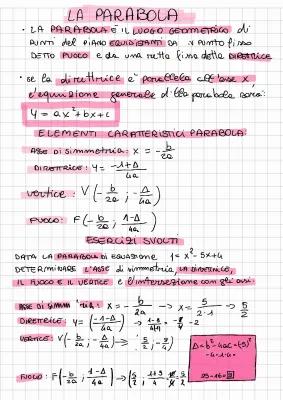 LA PARABOLA
• LA PARABOLA È IL LUOGO GEOMETRICO DI
PUNTI DEL PIANO EQUIDISTANTI DA 1 PUNTO FISSO
DETTO FUOCO e DA UNA RETTA FISSA DETTA DIRETTRICE
• se la direttrice è parallela all'asse x
l'equazione generale della parabola sarà:
y = ax² + bx + c
ELEMENTI CARATTERISTICI PARABOLA
ASSE DI SIMMETRIA: x = - b/2a
DIRETTRICE: y = -1+Δ/4a
VERTICE: V(- b/2a ; -Δ/4a)
FUOCO: F(- b/2a ; 1-Δ/4a)
ESERCIZI SVOLTI
DATA LA PARABOLA DI EQUAZIONE y = x² - 5x + 4
DETERMINARE L'ASSE DI SIMMETRIA, LA DIRETTRICE,
IL FUOCO E IL VERTICE e l'intersezione con gli assi.
ASSE DI x = - b/2a → x = 5/2·1 → 5/2
DIRETTRICE: y = (-1-Δ/4a)
VERTICE: V(- b/2a ; -Δ/4a) → (5/2 ; -9/4)
Δ = b² - 4ac = (-5)²
-4·1·4 =
25-16 = 9
FUOCO: F(- b/2a ; 1-Δ/4a) →